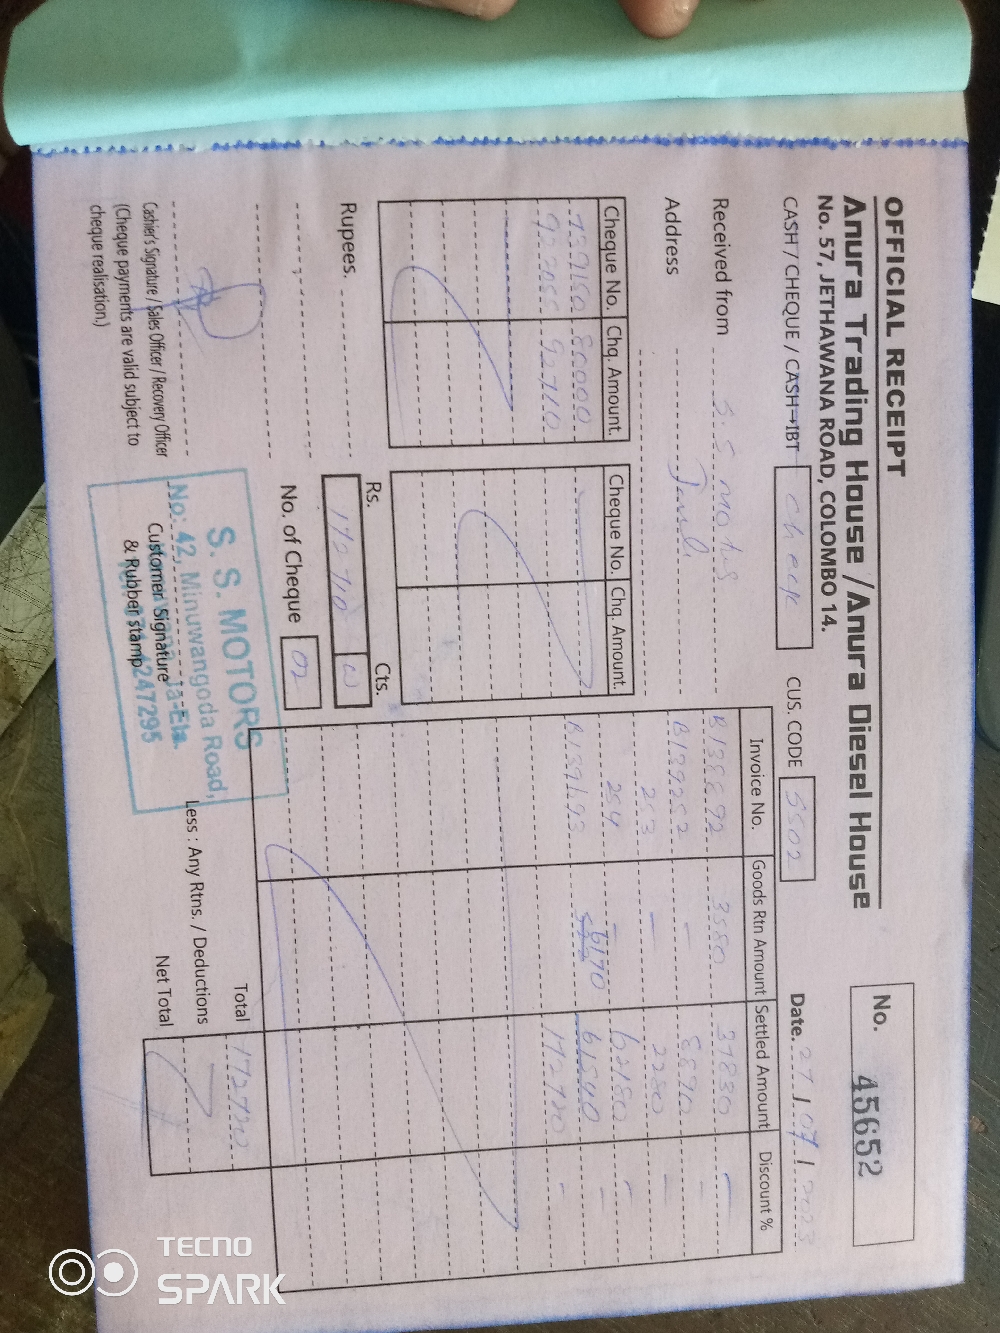 OFFICIAL RECEIPT
No. 45652
Anura Trading House /Anura Diesel House
No. 57, JETHAWANA ROAD, COLOMBO 14.
Date. 27 / 07 / 2023
CASH / CHEQUE / CASH→IBT cheque CUS. CODE 5502
Received from S. S. Motors
Address
Cheque No. Chq. Amount.
739150 80000
922055 92710
Cheque No. Chq. Amount.
Invoice No. Goods Rtn Amount Settled Amount Discount %
B138892 3580 37830 –
B139252 – 8870 –
253 – 2280 –
254 – 62180 –
B139193 6170 61540 –
Rupees.
Rs. Cts.
No. of Cheque 02
Total
Less : Any Rtns. / Deductions
Net Total
Cashier's Signature / Sales Officer / Recovery Officer
(Cheque payments are valid subject to
cheque realisation.)
Customer Signature
& Rubber stamp
S. S. MOTORS
No: 42, Minuwangoda Road,
Ja-Ela.
4247295
TECNO
SPARK